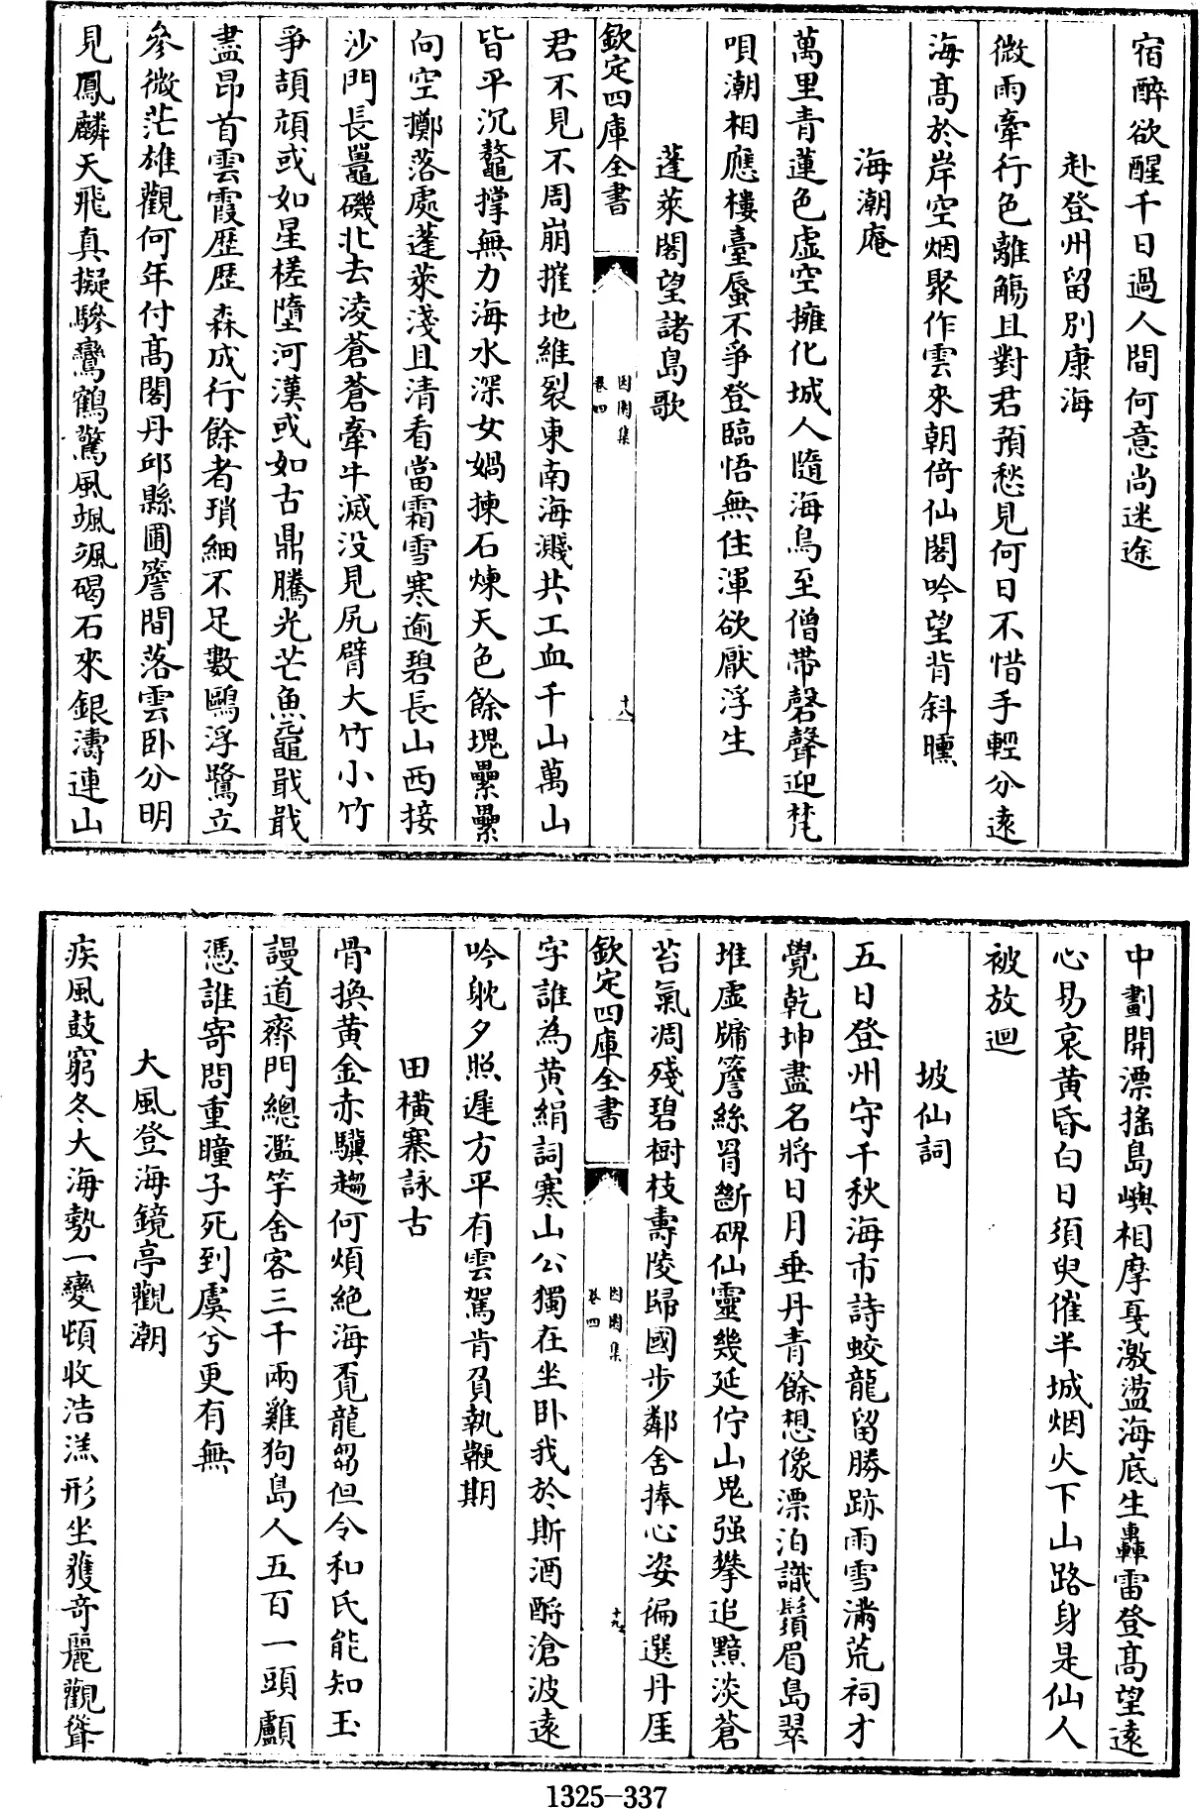 宿醉欲醒千日過人間何意尚迷途
赴登州留別康海
微雨牽行色離觴且對君預愁見何日不惜手輕分遠
海髙於岸空烟聚作雲來朝倚仙閣吟望背斜曛
海潮庵
萬里青蓮色虛空擁化城人隨海鳥至僧帶磬聲迎梵
唄潮相應樓臺蜃不爭登臨悟無住渾欲厭浮生
蓬萊閣望諸島歌
欽定四庫全書
因園集
卷四
十八
君不見不周崩摧地維裂東南海濺共工血千山萬山
皆平沉鼇撑無力海水深女媧揀石煉天色餘塊纍纍
向空擲落處蓬萊淺且清看當霜雪寒逾碧長山西接
沙門長鼉磯北去淩蒼蒼牽牛滅没見尻臂大竹小竹
爭頡頏或如星槎墮河漢或如古鼎騰光芒魚黿戢戢
盡昂首雲霞歴歴森成行餘者瑣細不足數鷗浮鷺立
參微茫雄觀何年付髙閣丹邱縣圃簷間落雲卧分明
見鳳麟天飛真擬驂鸞鶴驚風颯颯碣石來銀濤連山
中劃開漂摇島嶼相摩戛激盪海底生轟雷登髙望遠
心易哀黄昏白日須臾催半城烟火下山路身是仙人
被放迴
坡仙詞
五日登州守千秋海市詩蛟龍留勝跡雨雪滿荒祠才
覺乾坤盡名將日月垂丹青餘想像漂泊識鬚眉島翠
堆虛牖簷絲罥斷碑仙靈幾延佇山鬼强攀追黯淡蒼
苔氣凋殘碧樹枝壽陵歸國步鄰舍捧心姿徧選丹厓
欽定四庫全書
因園集
卷四
十九
字誰為黄絹詞寒山公獨在坐卧我於斯酒酹滄波遠
吟耽夕照遲方平有雲駕肯負執鞭期
田橫寨詠古
骨換黄金赤驥趨何煩絶海覔龍芻但令和氏能知玉
謾道齊門總濫竽舍客三千兩雞狗島人五百一頭顱
憑誰寄問重瞳子死到虞兮更有無
大風登海鏡亭觀潮
疾風鼓窮冬大海勢一變頓收浩渺形坐獲奇麗觀聳
1325-337